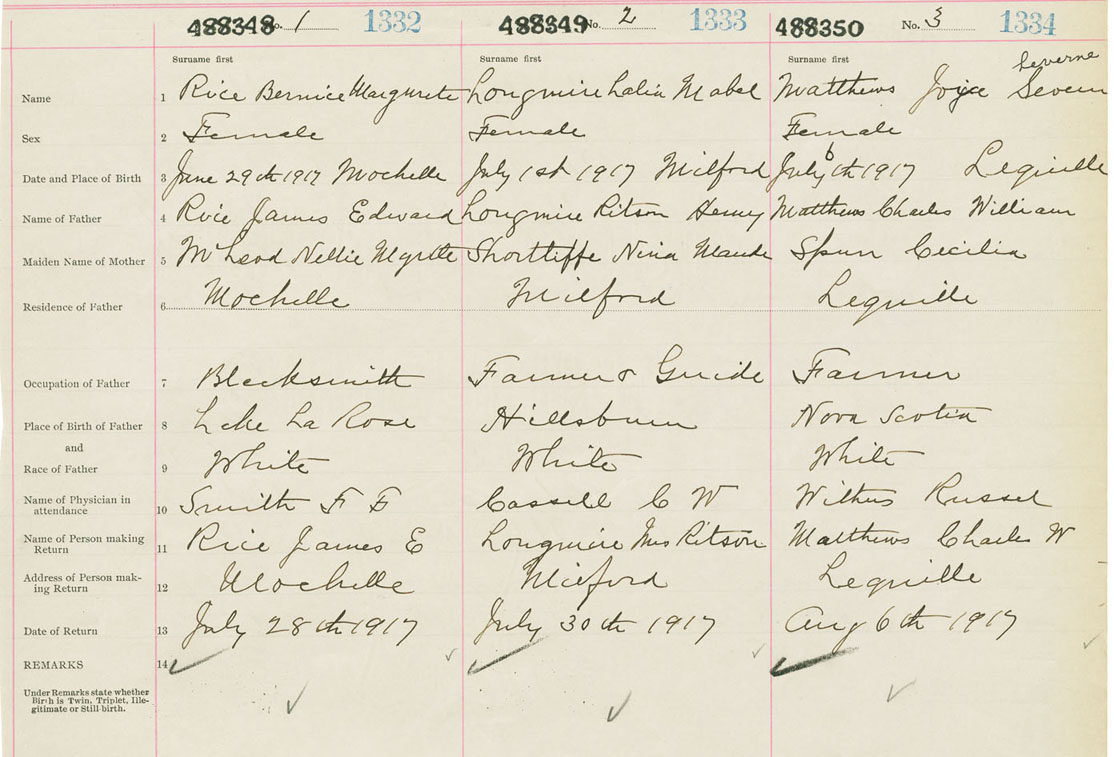 488348 No. 1 1332 488349 No. 2 1333 488350 No. 3 1334
Surname first Surname first Surname first Leverne
Name 1 Rice Bernice Margurete Longmire Lalia Mabel Matthews Joyce Severn
Sex 2 Female Female Female
Date and Place of Birth 3 June 29th 1917 Mochelle July 1st 1917 Milford July 6th 1917 Lequille
Name of Father 4 Rice James Edward Longmire Ritson Henry Matthews Charles William
Maiden Name of Mother 5 McLeod Nellie Myrtle Shortliffe Nina Maude Spurr Cecilia
Residence of Father 6 Mochelle Milford Lequille
Occupation of Father 7 Blacksmith Farmer & Guide Farmer
Place of Birth of Father 8 Lake La Rose Hillsburn Nova Scotia
and
Race of Father 9 White White White
Name of Physician in
attendance 10 Smith F F Cassell C W Withers Russel
Name of Person making
Return 11 Rice James E Longmire Mrs Ritson Matthews Charles W
Address of Person mak-
ing Return 12 Mochelle Milford Lequille
Date of Return 13 July 28th 1917 July 30th 1917 Aug 6th 1917
REMARKS 14
Under Remarks state whether
Birth is Twin, Triplet, Ille-
gitimate or Still-birth.